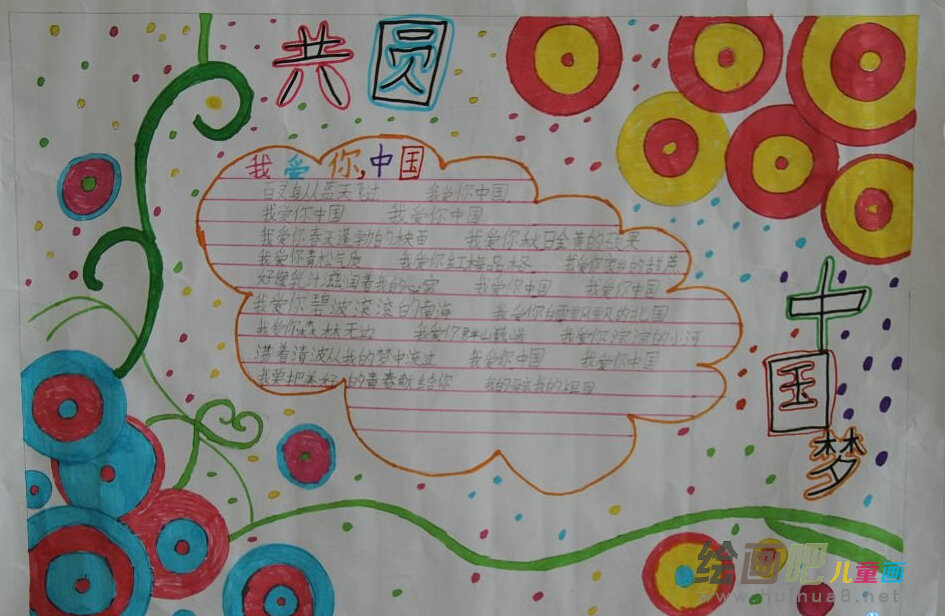 共圆
我爱你,中国
百灵鸟从蓝天飞过 我爱你中国
我爱你中国 我爱你中国
我爱你春天蓬勃的秧苗 我爱你秋日金黄的硕果
我爱你青松气质 我爱你红梅品格 我爱你家乡的甜蔗
好像乳汁滋润着我的心窝 我爱你中国 我爱你中国
我爱你碧波滚滚的南海 我爱你白雪飘飘的北国
我爱你森林无边 我爱你群山巍峨 我爱你淙淙的小河
荡着清波从我的梦中流过 我爱你中国 我爱你中国
我要把美好的青春献给你 我的母亲我的祖国
中
国
梦
绘画吧儿童画
www.huihua8.net